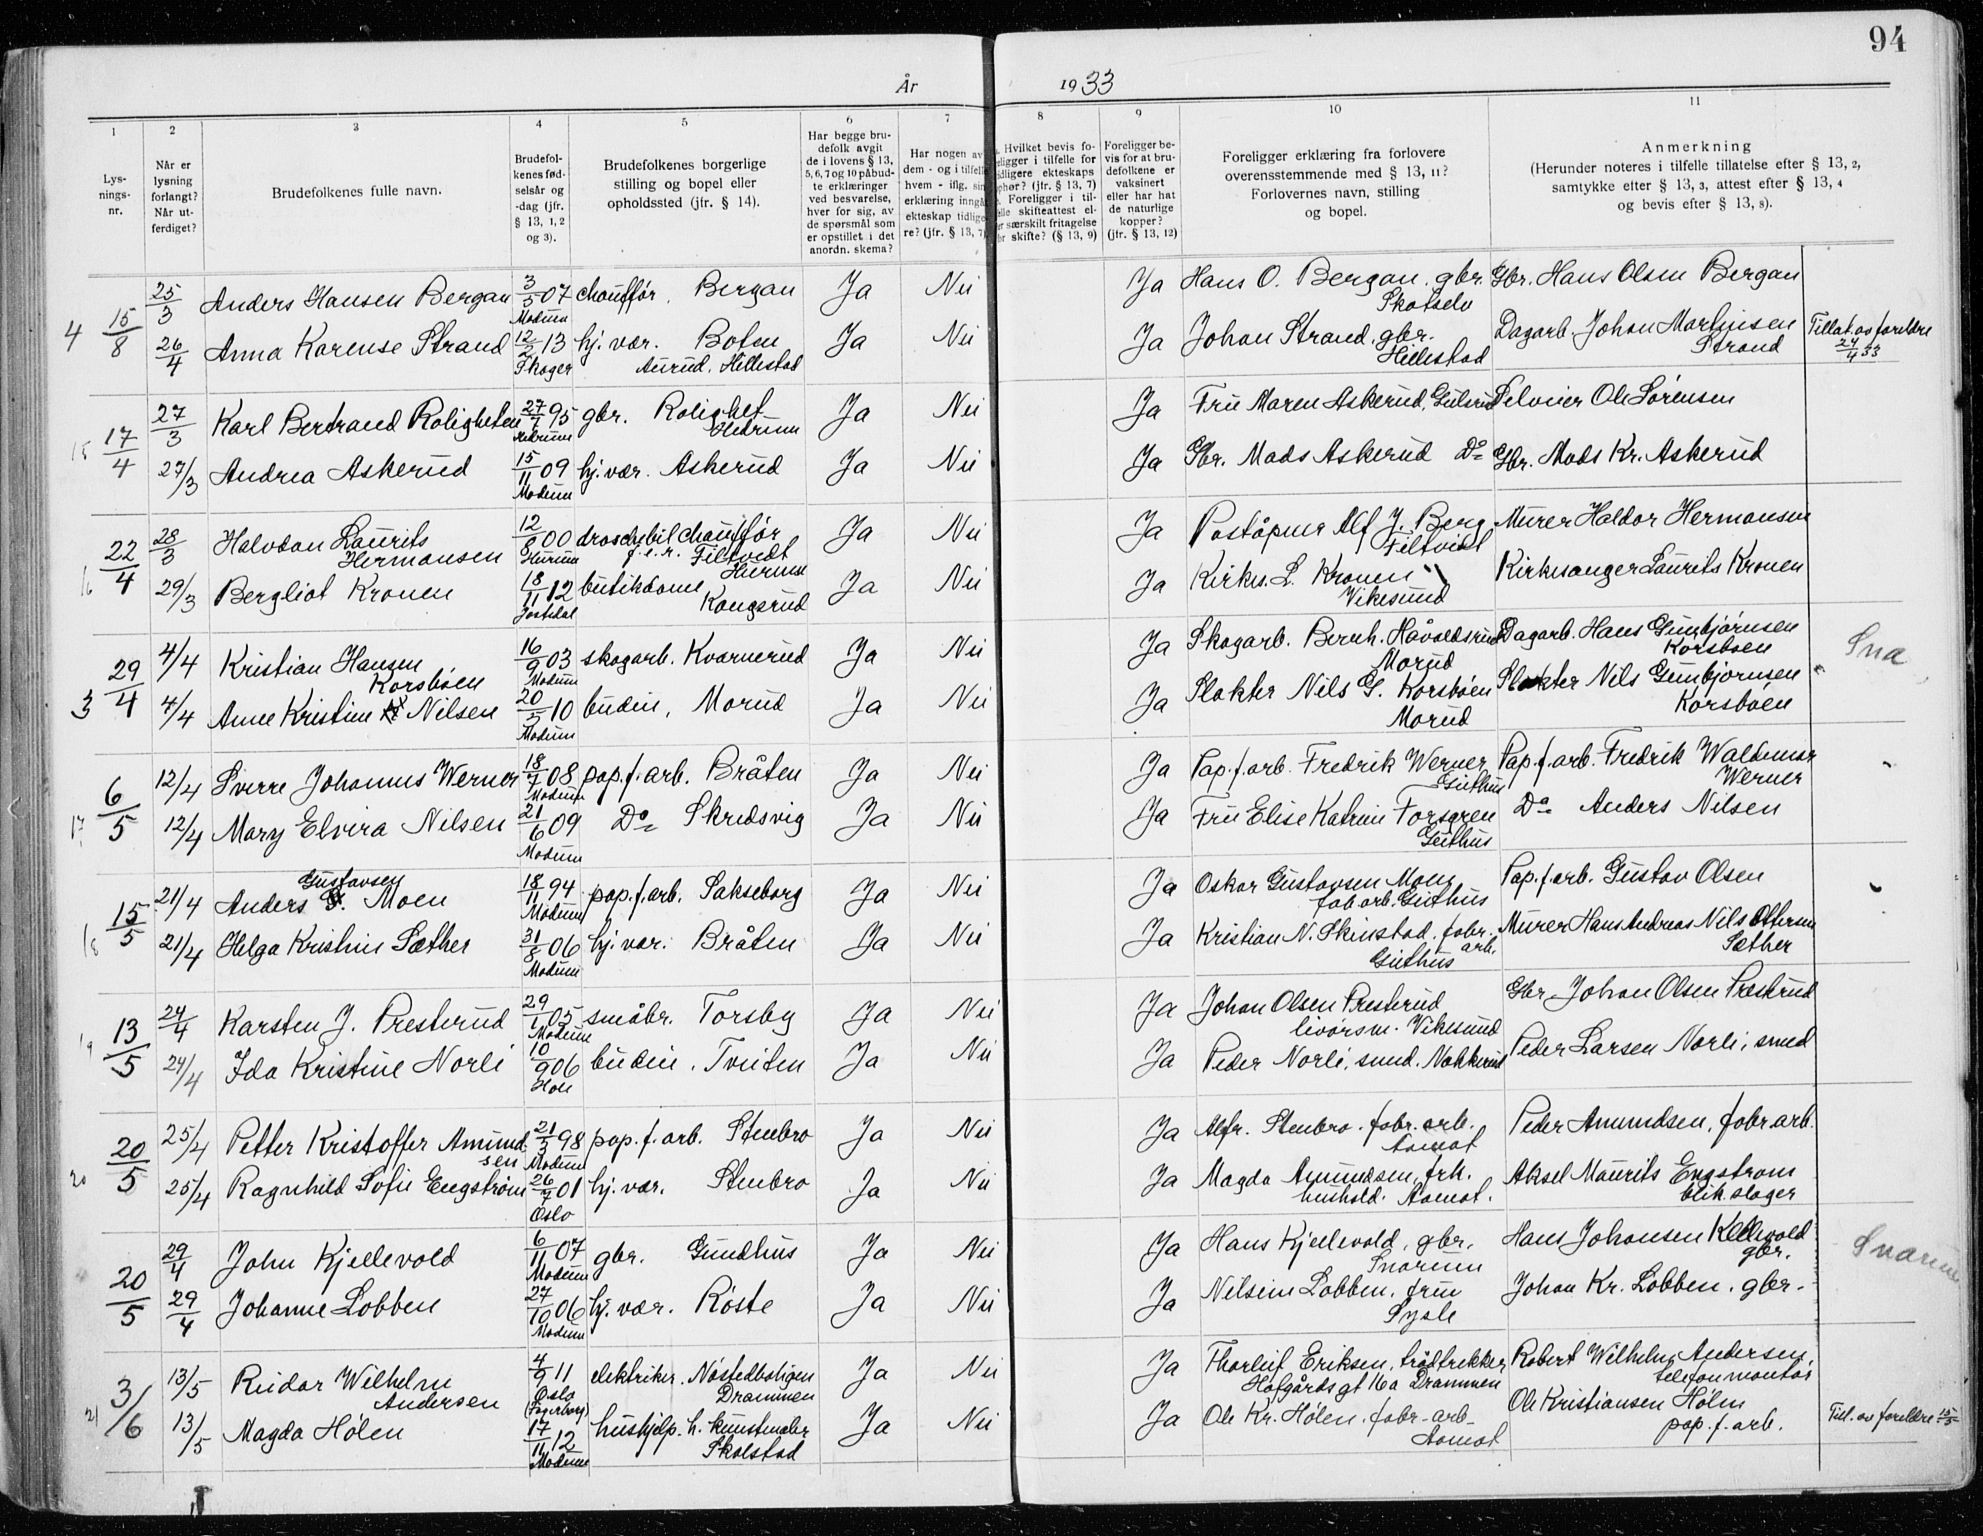 94
År 1933
1 2 3 4 5 6 7 8 9 10 11
Lys-
nings-
nr.
Når er
lysning
forlangt?
Når ut-
ferdiget?
Brudefolkenes fulle navn.
Brudefol-
kenes fød-
selsår og
-dag (jfr.
§ 13, 1, 2
og 3).
Brudefolkenes borgerlige
stilling og bopel eller
opholdssted (jfr. § 14).
Har begge bru-
defolk avgit
de i lovens § 13,
5, 6, 7 og 10 påbud-
te erklæringer
ved besvarelse,
hver for sig, av
de spørsmål som
er opstillet i det
anordn. skema?
Har nogen av
dem - og i tilfelle
hvem - iflg. sin
erklæring inngå
ekteskap tidlige
re? (jfr. § 13, 7)
Hvilket bevis fo-
religger i tilfelle for
tidligere ekteskaps
ophør? (jfr. § 13, 7)
Foreligger i til-
felle skifteattest el-
ler særskilt fritagelse
for skifte? (§ 13, 9)
Foreligger be-
vis for at bru-
defolkene er
vaksinert
eller har hat
de naturlige
kopper?
(jfr. § 13, 12)
Foreligger erklæring fra forlovere
overensstemmende med § 13, 11?
Forlovernes navn, stilling
og bopel.
Anmerkning
(Herunder noteres i tilfelle tillatelse efter § 13, 2,
samtykke efter § 13, 3, attest efter § 13, 4
og bevis efter § 13, 8).
4 15/8 25/3 Anders Hansen Bergan 3/5 07 Modum chauffør. Bergan Ja Nei Ja Hans O. Bergan. gbr. Skotselv Gbr. Hans Olsen Bergan
26/4 Anna Karense Strand 12/2 13 Skoger hj. vær. Boten Aurud. Hellestad Ja Nei Ja Johan Strand. gbr. Hellestad Dagarb. Johan Martinsen Strand Tillat. av foreldre 24/4 33
15 17/4 27/3 Karl Bertrand Roligheten 27/7 95 gbr. Rolighet Ja Nei Ja Fru Maren Askerud, Gulsrud Selveier Ole Sørensen
27/3 Andrea Askerud 15/11 09 Modum hj. vær. Askerud Ja Nei Ja Gbr. Mads Askerud Do Gbr. Mads Kr. Askerud
16 22/4 28/3 Halvdan Laurits Hermansen 12/9 00 Hurum droschebilchauffør f.e.r. Filtvedt Hurum Ja Nei Ja Poståpner Alf J. Berg Filtvedt Murer Haldor Hermansen
29/3 Bergliot Kronen 18/11 12 Jostedal butikdame Kongsrud Ja Nei Ja Kirkes. L. Kronen Vikesund Kirkesanger Laurits Kronen
3 29/4 4/4 Kristian Hansen Korsbøen 16/9 03 Modum skogarb. Kvarnerud Ja Nei Ja Skogarb. Bernh. Håvoldsrud Morud Dagarb. Hans Gunbjørnsen Korsbøen Sna
4/4 Anne Kristine Nilsen 20/5 10 Modum budeie, Morud Ja Nei Ja Slakter Nils G. Korsbøen Morud Slakter Nils Gunbjørnsen Korsbøen
17 6/5 12/4 Sverre Johannes Werner 18/7 08 Modum pap. f. arb. Bråten Ja Nei Ja Pap. f. arb. Fredrik Werner Geithus Pap. f. arb. Fredrik Waldemar Werner
12/4 Mary Elvira Nilsen 21/6 09 Modum Do Skredsvig Ja Nei Ja Fru Elise Katrine Forsgren Geithus Do Anders Nilsen
18 15/5 21/4 Anders Gustavsen Moen 18/11 94 Modum pap. f. arb. Sakseborg Ja Nei Ja Oskar Gustavsen Moen fab. arb. Geithus Pap. f. arb. Gustav Olsen
21/4 Helga Kristine Sæther 31/8 06 Modum hj. vær. Bråten Ja Nei Ja Kristian N. Skinstad. fabr. arb. Geithus Murer Hans Andreas Nils Ottersen Sæther
19 13/5 24/4 Karsten J. Presterud 29/1 05 Modum småbr. Torsby Ja Nei Ja Johan Olsen Presterud livørsm. Vikesund Gbr. Johan Olsen Præsterud
24/4 Ida Kristine Norli 10/9 06 Hole budeie. Tveiten Ja Nei Ja Peder Norli, smed. Nakkerud Peder Larsen Norli, smed
20 20/5 25/4 Petter Kristoffer Amundsen 21/3 98 Modum pap. f. arb. Stenbro Ja Nei Ja Alfr. Stenbro. fabr. arb. Aamot Peder Amundsen, fabr. arb.
25/4 Ragnhild Sofie Engstrøm 26/7 01 Oslo hj. vær. Stenbro Ja Nei Ja Magda Amundsen, frk. hushold. Aamot. Aksel Maurits Engstrom blik.slager
20/5 29/4 John Kjellevold 6/11 07 Modum gbr. Gundhus Ja Nei Ja Hans Kjellevold, gbr. Snarum Hans Johansen Kjellevold gbr. Snarum
29/4 Johanne Lobben 27/10 06 Modum hj. vær. Røste Ja Nei Ja Nilsine Lobben. frue Sysle Johan Kr. Lobben. gbr.
21 3/6 13/5 Reidar Wilhelm Andersen 4/9 11 Oslo (Fagerborg) elektriker. Nøstedboligen Drammen Ja Nei Ja Thorleif Eriksen, trådtrekker Hofgårdsgt 16a Drammen Robert Wilhelm Andersen, telefonmontør
13/5 Magda Hølen 17/11 12 Modum hushjelp. h. kunstmaler Skolstad Ja Nei Ja Ole Kr. Hølen. fabr-arb- Aamot Ole Kristiansen Hølen pap. f. arb. Till. av foreldre 15/5